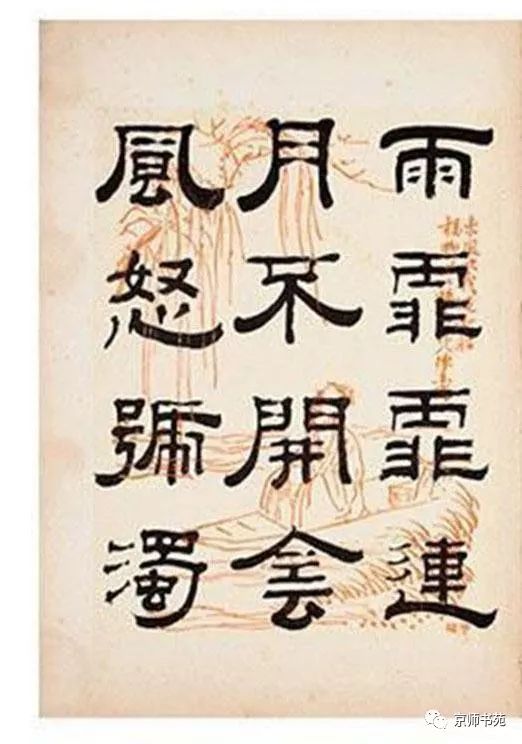 雨霏霏連
月不開侌
風怒號濁
京师书苑